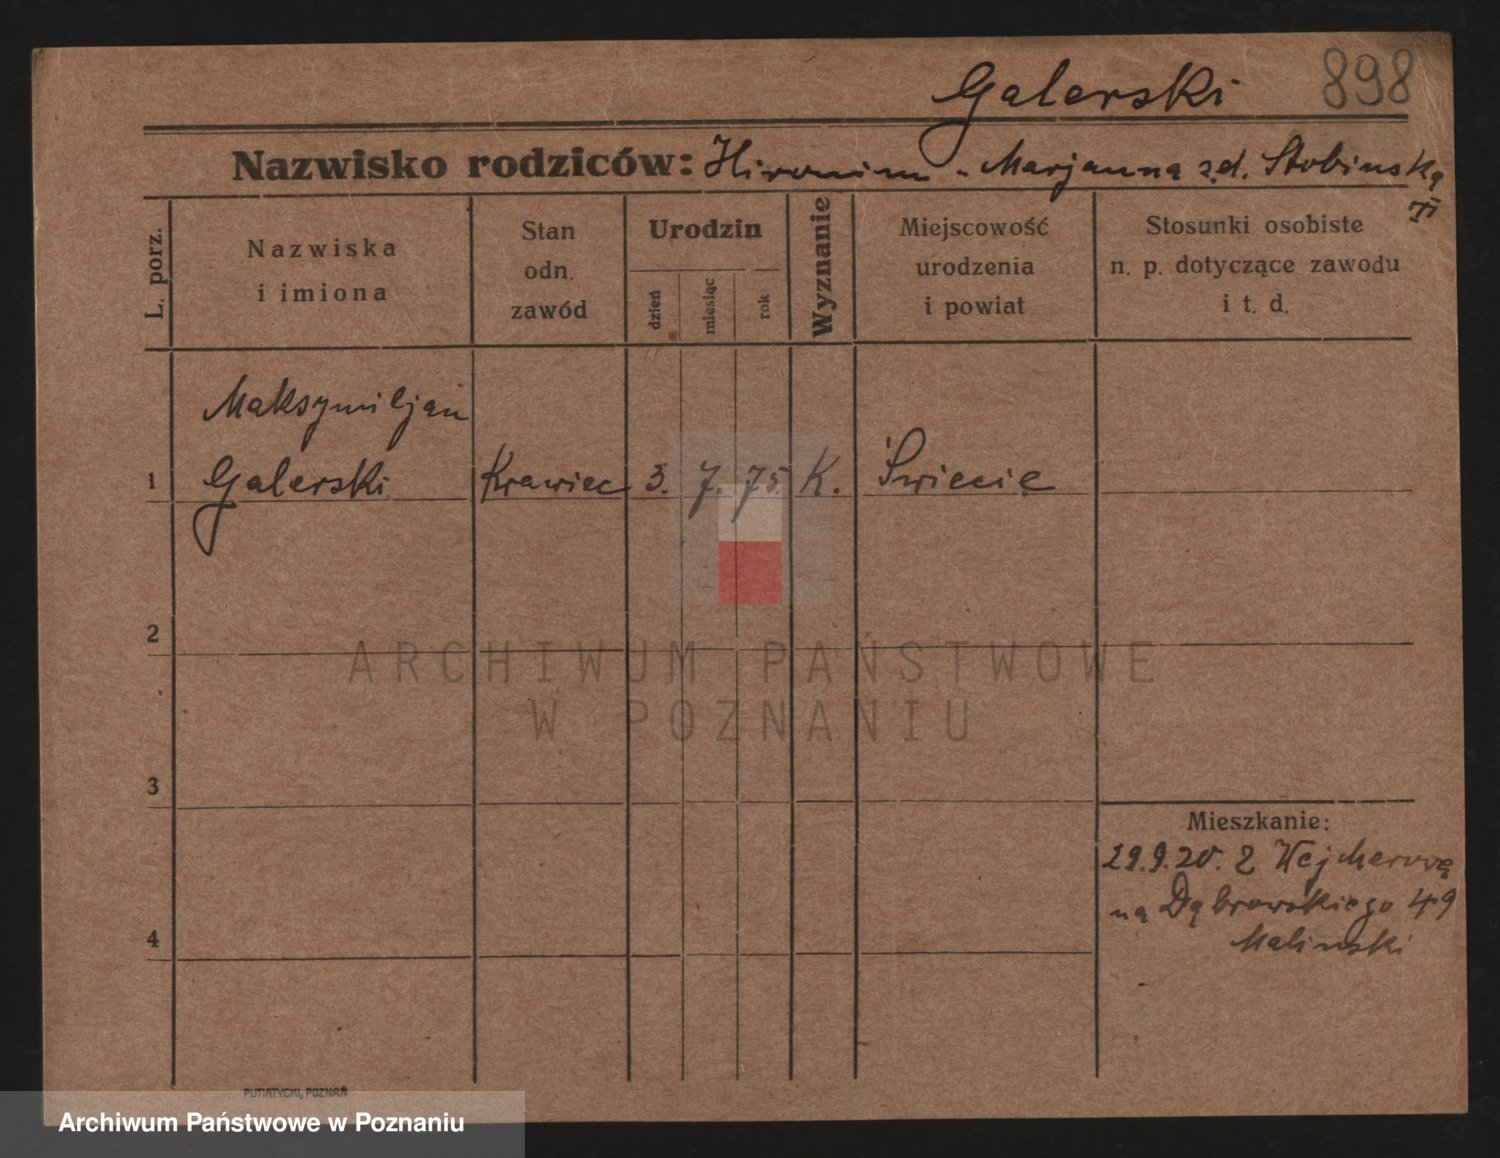 Galerski 898
Nazwisko rodziców: Hironim - Marjanna z.d. Stobinska
L. porz.
Nazwiska
i imiona
Stan
odn.
zawód
Urodzin
dzień
miesiąc
rok
Wyznanie
Miejscowość
urodzenia
i powiat
Stosunki osobiste
n. p. dotyczące zawodu
i t. d.
Maksymiljan
1 Galerski Krawiec 3. 7. 75. K. Świecie
2
ARCHIWUM PAŃSTWOWE
W POZNANIU
3
Mieszkanie:
29.9.20. z Wejherowa
na Dąbrowskiego 49
Malinski
4
PUTIATYCKI, POZNAŃ
Archiwum Państwowe w Poznaniu